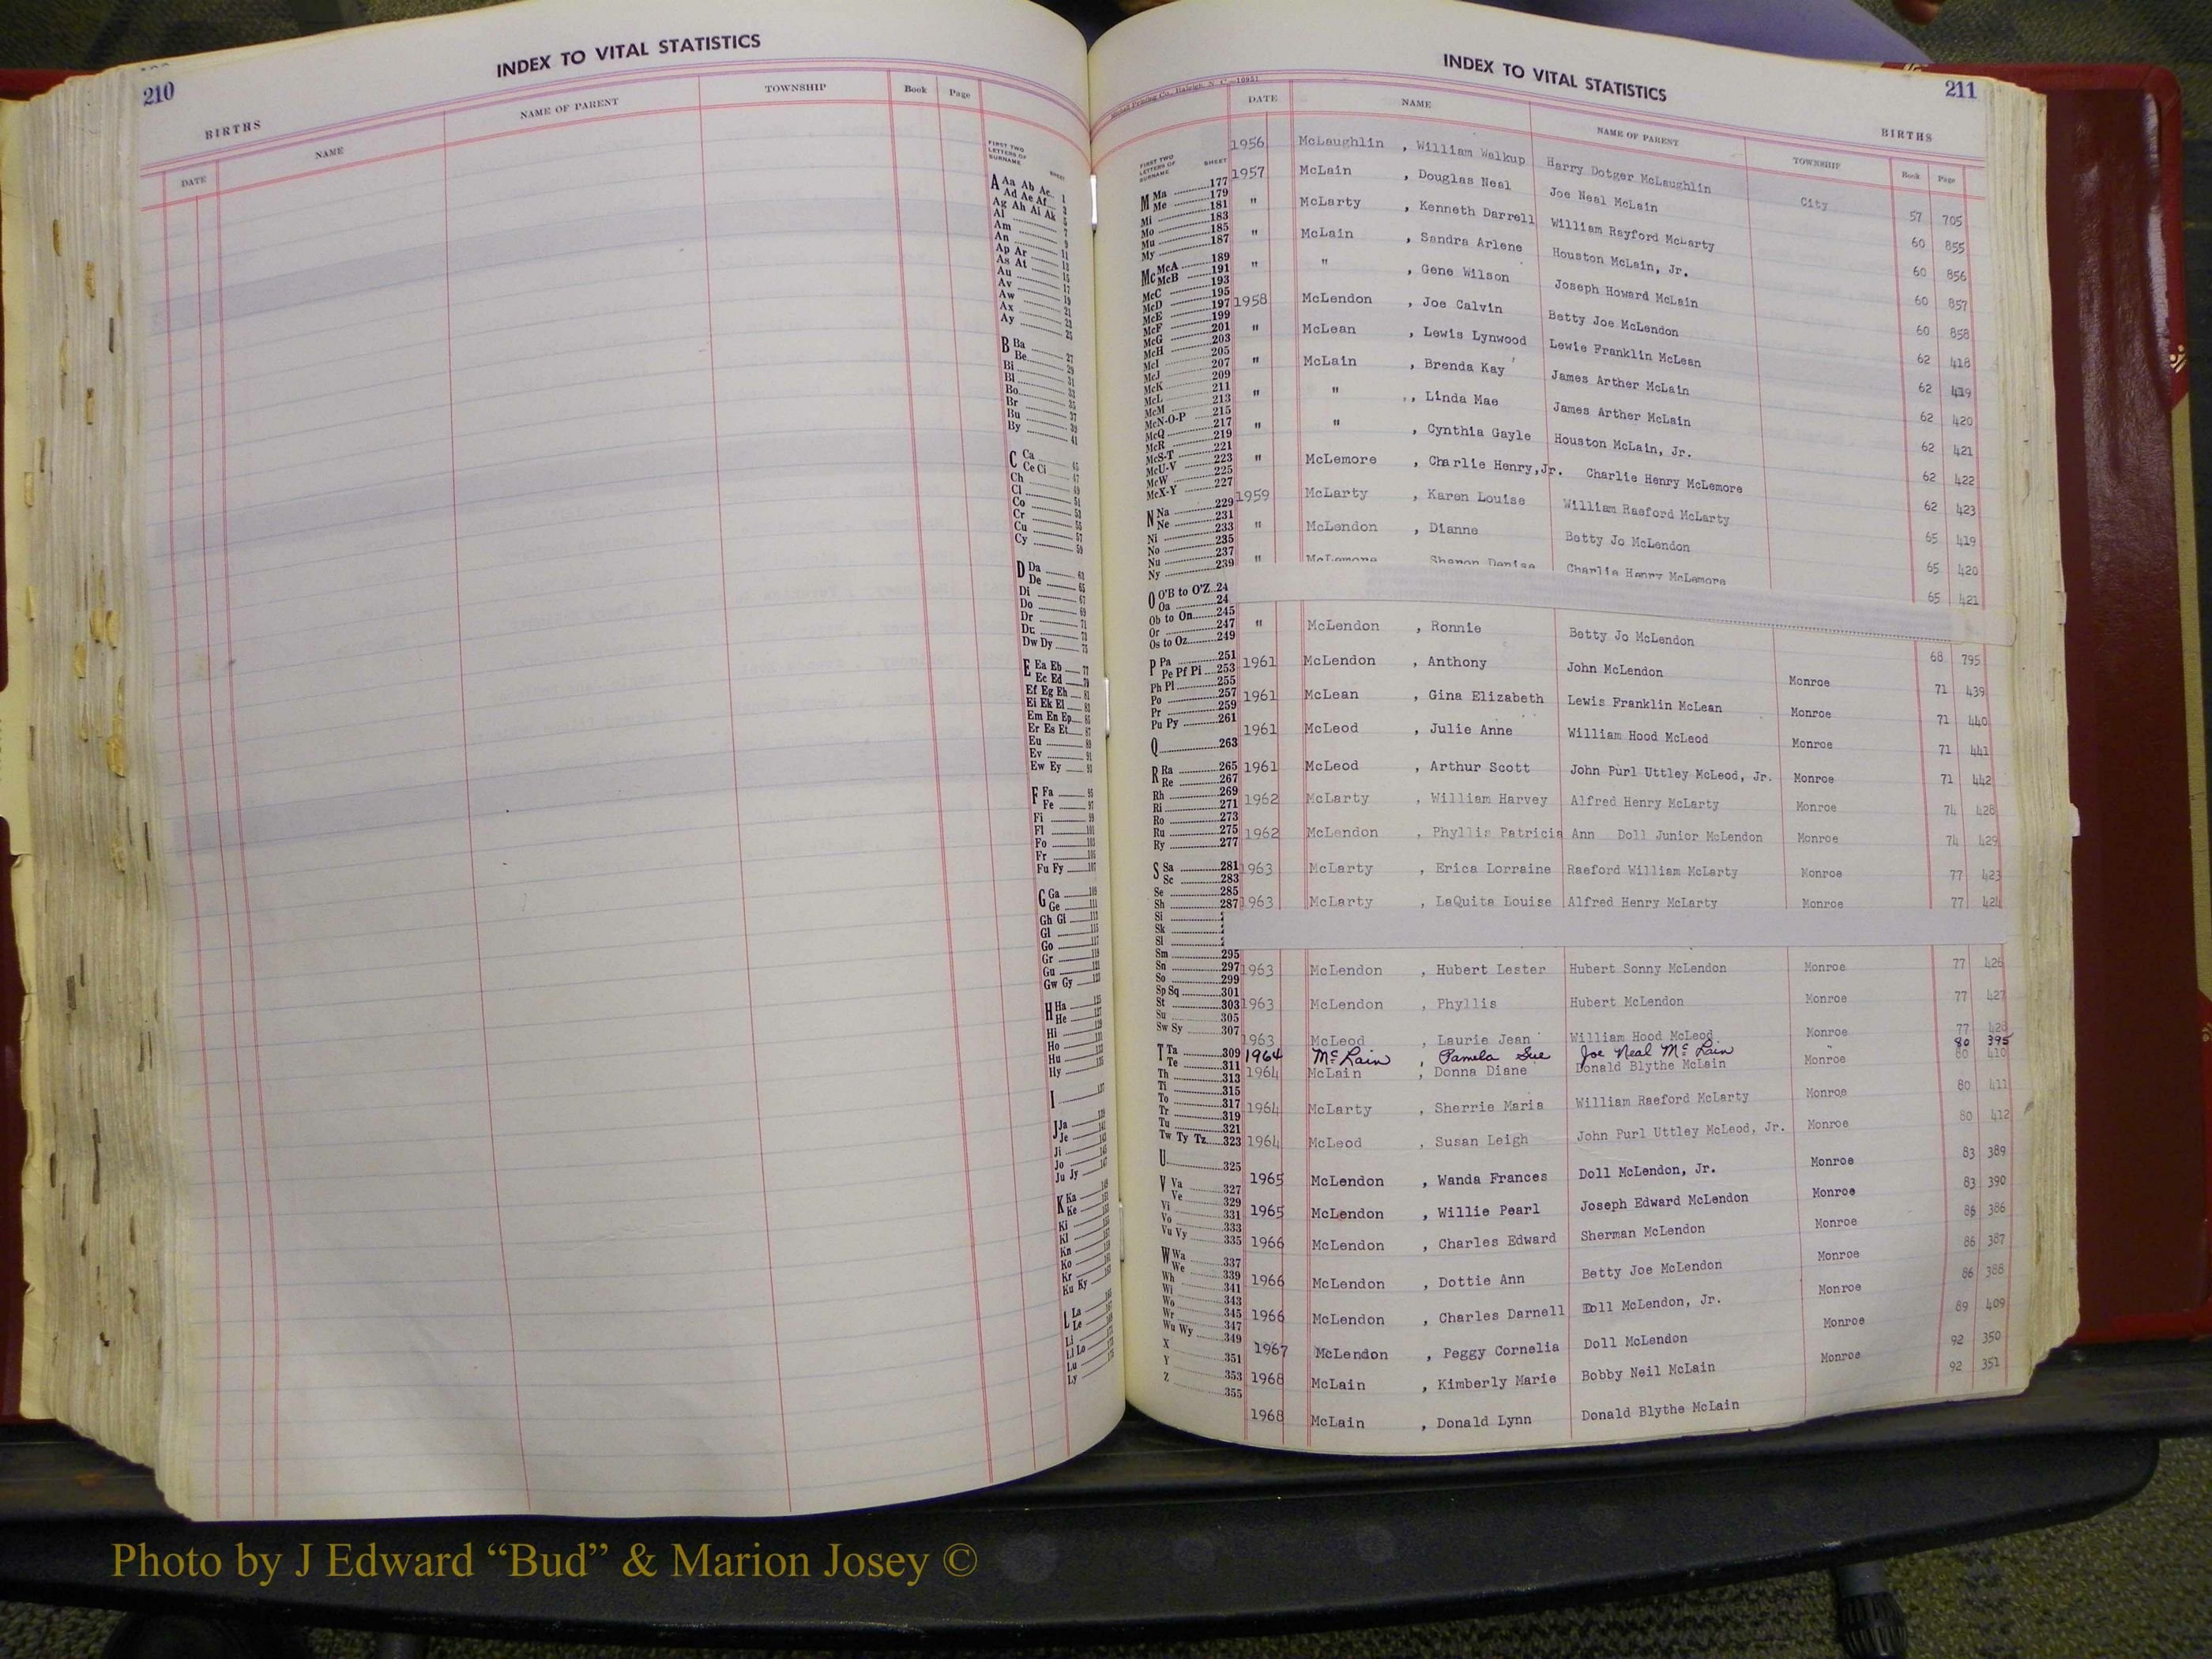 210
INDEX TO VITAL STATISTICS
BIRTHS
DATE NAME NAME OF PARENT TOWNSHIP Book Page
FIRST TWO LETTERS OF SURNAME SHEET
A Aa Ab Ac 1
Ad Ae Af 3
Ag Ah Ai Ak 5
Al 7
Am 9
An 11
Ap Ar 13
As At 15
Au 17
Av 19
Aw 21
Ax 23
Ay 25
B Ba 27
Be 29
Bi 31
Bl 33
Bo 35
Br 37
Bu 39
By 41
C Ca 45
Ce Ci 47
Ch 49
Cl 51
Co 53
Cr 55
Cu 57
Cy 59
D Da 63
De 65
Di 67
Do 69
Dr 71
Du 73
Dw Dy 75
E Ea Eb 77
Ec Ed 79
Ef Eg Eh 81
Ei Ek El 83
Em En Ep 85
Er Es Et 87
Eu 89
Ev 91
Ew Ey 93
F Fa 95
Fe 97
Fi 99
Fl 101
Fo 103
Fr 105
Fu Fy 107
G Ga 109
Ge 111
Gh Gi 113
Gl 115
Go 117
Gr 119
Gu 121
Gw Gy 123
H Ha 125
He 127
Hi
Ho
Hu
Hy
I
J Ja
Je
Ji
Jo
Ju Jy
K Ka
Ke
Ki
Kl
Kn
Ko
Kr
Ku Ky
L La
Le
Li
Ll Lo
Lu
Ly
INDEX TO VITAL STATISTICS
211
Printing Co., Raleigh, N. C.—10951
BIRTHS
DATE NAME NAME OF PARENT TOWNSHIP Book Page
FIRST TWO LETTERS OF SURNAME SHEET
M Ma 177
Me 179
Mi 181
Mo 183
Mu 185
My 187
Mc McA 189
McB 191
McC 193
McD 195
McE 197
McF 199
McG 201
McH 203
McI 205
McJ 207
McK 209
McL 211
McM 213
McN-O-P 215
McQ 217
McR 219
McS-T 221
McU-V 223
McW 225
McX-Y 227
N Na 229
Ne 231
Ni 233
No 235
Nu 237
Ny 239
O O'B to O'Z 24
Oa 24
Ob to On 245
Or 247
Os to Oz 249
P Pa 251
Pe Pf Pi 253
Ph Pl 255
Po 257
Pr 259
Pu Py 261
Q 263
R Ra 265
Re 267
Rh 269
Ri 271
Ro 273
Ru 275
Ry 277
S Sa 281
Sc 283
Se 285
Sh 287
Si
Sk
Sl
Sm 295
Sn 297
So 299
Sp Sq 301
St 303
Su 305
Sw Sy 307
T Ta 309
Te 311
Th 313
Ti 315
To 317
Tr 319
Tu 321
Tw Ty Tz 323
U 325
V Va 327
Ve 329
Vi 331
Vo 333
Vu Vy 335
W Wa 337
We 339
Wh 341
Wi 343
Wo 345
Wr 347
Wu Wy 349
X 351
Y 353
Z 355
1956 McLaughlin , William Walkup Harry Dotger McLaughlin City 57 705
1957 McLain , Douglas Neal Joe Neal McLain 60 855
" McLarty , Kenneth Darrell William Rayford McLarty 60 856
" McLain , Sandra Arlene Houston McLain, Jr. 60 857
" " , Gene Wilson Joseph Howard McLain 60 858
1958 McLendon , Joe Calvin Betty Joe McLendon 62 418
" McLean , Lewis Lynwood Lewie Franklin McLean 62 419
" McLain , Brenda Kay James Arther McLain 62 420
" " , Linda Mae James Arther McLain 62 421
" " , Cynthia Gayle Houston McLain, Jr. 62 422
" McLemore , Charlie Henry,Jr. Charlie Henry McLemore 62 423
1959 McLarty , Karen Louise William Raeford McLarty 65 419
" McLendon , Dianne Betty Jo McLendon 65 420
" McLemore Sharon Denise Charlie Henry McLemore 65 421
" McLendon , Ronnie Betty Jo McLendon 68 795
1961 McLendon , Anthony John McLendon Monroe 71 439
1961 McLean , Gina Elizabeth Lewis Franklin McLean Monroe 71 440
1961 McLeod , Julie Anne William Hood McLeod Monroe 71 441
1961 McLeod , Arthur Scott John Purl Uttley McLeod, Jr. Monroe 71 442
1962 McLarty , William Harvey Alfred Henry McLarty Monroe 74 428
1962 McLendon , Phyllis Patricia Ann Doll Junior McLendon Monroe 74 429
1963 McLarty , Erica Lorraine Raeford William McLarty Monroe 77 423
1963 McLarty , LaQuita Louise Alfred Henry McLarty Monroe 77 424
1963 McLendon , Hubert Lester Hubert Sonny McLendon Monroe 77 426
1963 McLendon , Phyllis Hubert McLendon Monroe 77 427
1963 McLeod , Laurie Jean William Hood McLeod Monroe 77 428
1964 McLain , Pamela Sue Joe Neal McLain " 80 395
1964 McLain , Donna Diane Donald Blythe McLain Monroe 80 410
1964 McLarty , Sherrie Maria William Raeford McLarty Monroe 80 411
1964 McLeod , Susan Leigh John Purl Uttley McLeod, Jr. Monroe 80 412
1965 McLendon , Wanda Frances Doll McLendon, Jr. Monroe 83 389
1965 McLendon , Willie Pearl Joseph Edward McLendon Monroe 83 390
1966 McLendon , Charles Edward Sherman McLendon Monroe 86 386
1966 McLendon , Dottie Ann Betty Joe McLendon Monroe 86 387
1966 McLendon , Charles Darnell Doll McLendon, Jr. Monroe 86 388
1967 McLendon , Peggy Cornelia Doll McLendon Monroe 89 409
1968 McLain , Kimberly Marie Bobby Neil McLain Monroe 92 350
1968 McLain , Donald Lynn Donald Blythe McLain Monroe 92 351
Photo by J Edward “Bud” & Marion Josey ©